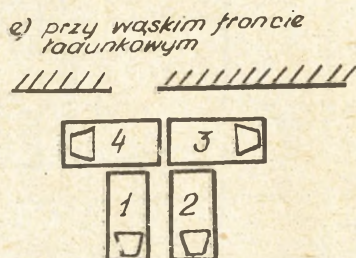 e) przy wąskim froncie
ładunkowym
4 3
1 2